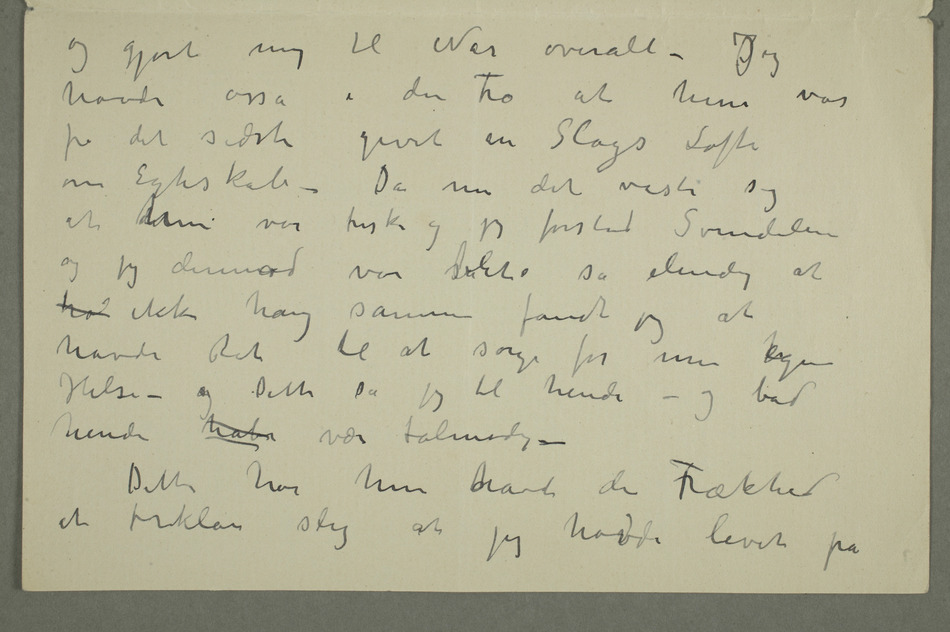 og gjort mig til Nar overalt – Jeg
havde osså i den Tro at hun var
på det sidste givet en Slags Løfte
om Egteskab – Da nu det viste sig
at hun var frisk og jeg forstod Svindelen
og jeg dermed var så elendig at
ikke hang sammen fandt jeg at
havde Ret til at sørge for min Egen
Helse – og Dette sa jeg til hende – og bad
hende være talmodig –
Dette har hun havt den Frækhed
at forklare slig at jeg havde levet på